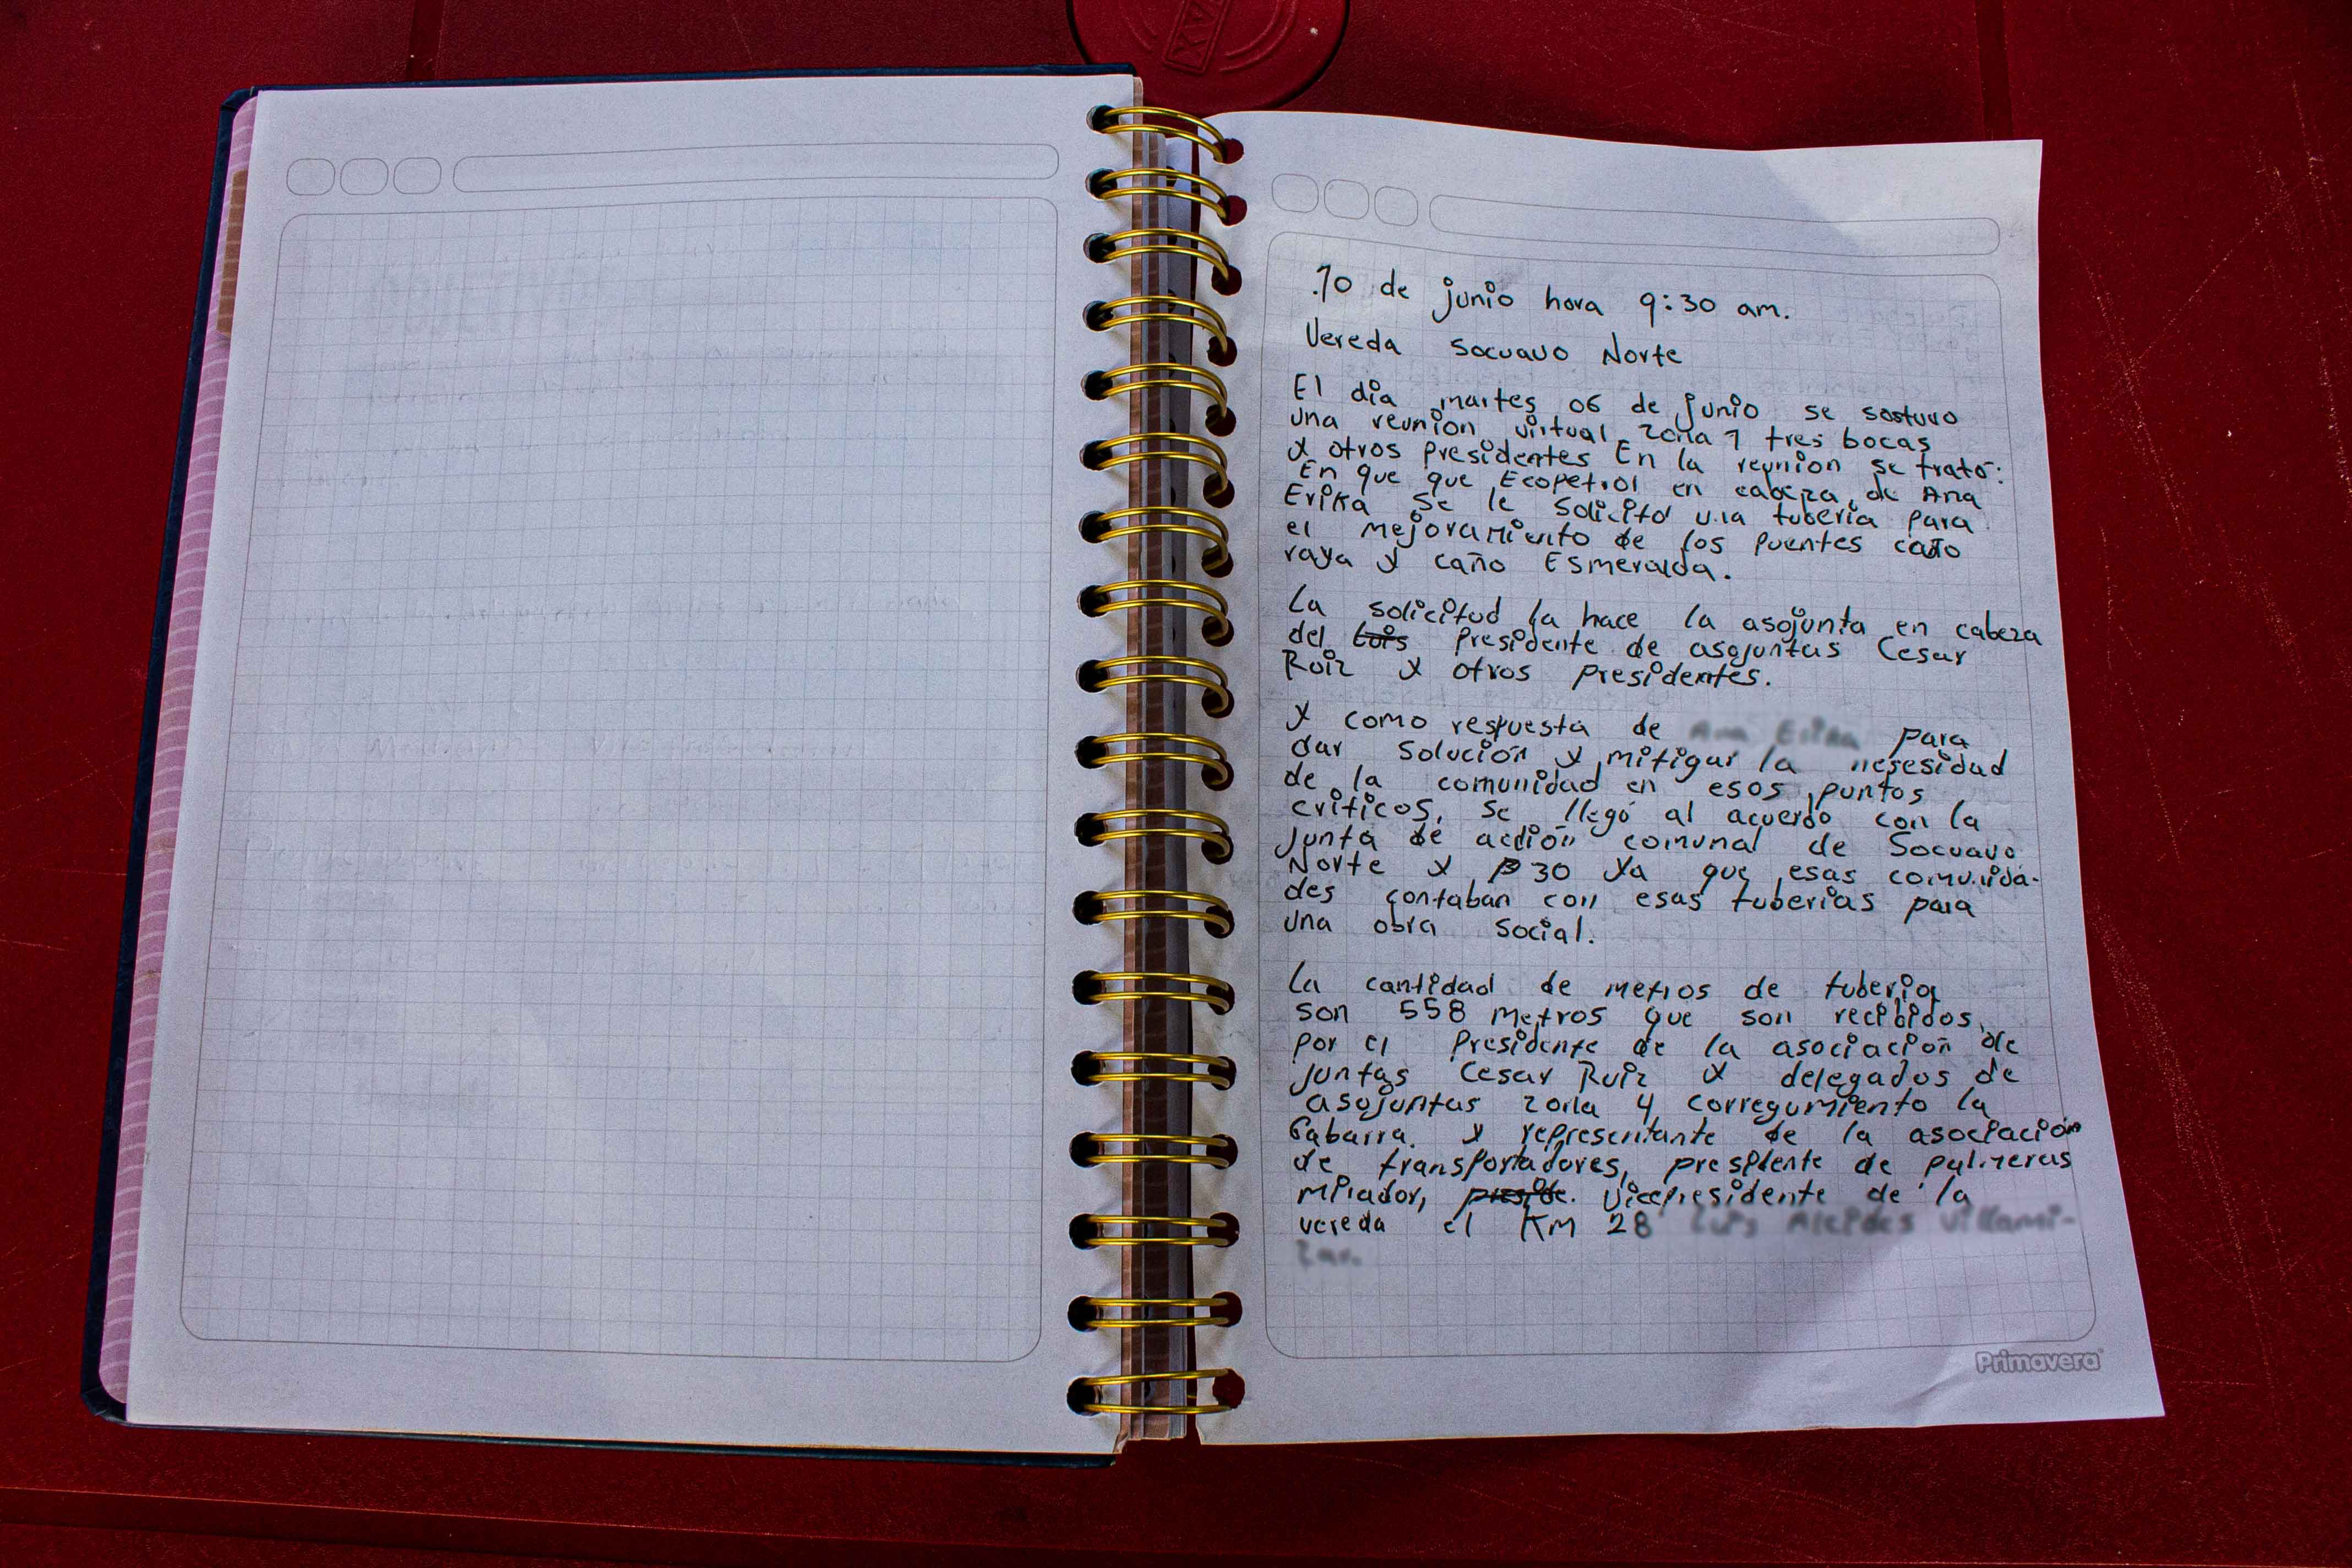 10 de junio hora 9:30 am.
Vereda Socuavo Norte
El dia martes 06 de junio se sostuvo
una reunion virtual zona 1 tres bocas
y otros presidentes En la reunion se trató:
En que que Ecopetrol en cabeza de Ana
Erika se le solicitó una tuberia para
el mejoramiento de los puentes caño
raya y caño Esmeralda.
La solicitud la hace la asojunta en cabeza
del Luis presidente de asojuntas Cesar
Ruiz y otros presidentes.
y como respuesta de para
dar solución y mitigar la nesesidad
de la comunidad en esos puntos
criticos, se llegó al acuerdo con la
junta de acción comunal de Socuavo
Norte y P30 ya que esas comunida-
des contaban con esas tuberias para
una obra social.
La cantidad de metros de tuberia
son 558 metros que son recibidos
por el Presidente de la asociación de
juntas Cesar Ruiz y delegados de
asojuntas zona 4 corregumiento la
Gabarra. y representante de la asociación
de transportadores, presidente de palmeras
mirador, preside. Vicepresidente de la
vereda el Km 28
Primavera